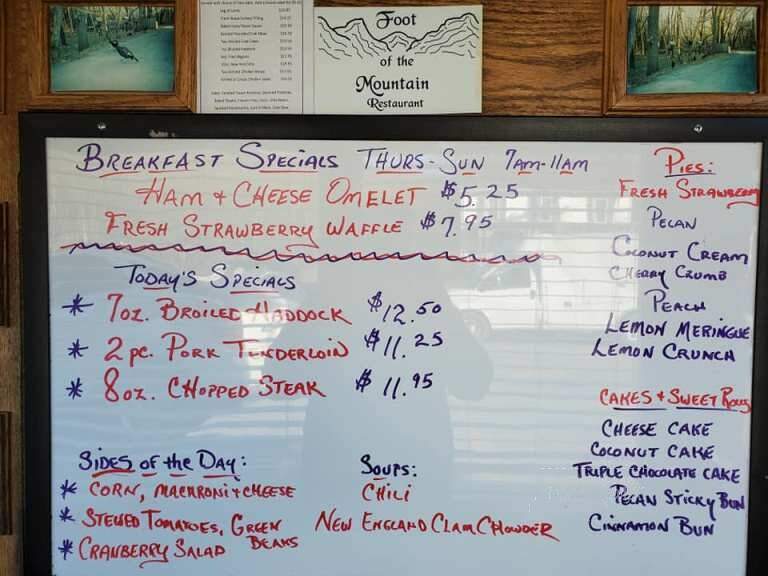 Foot
of the
Mountain
Restaurant
BREAKFAST SPECIALS THURS-SUN 7AM-11AM
HAM + CHEESE OMELET $5.25
FRESH STRAWBERRY WAFFLE $7.95
TODAY'S SPECIALS
* 7oz. BROILED HADDOCK $12.50
* 2 pc. PORK TENDERLOIN $11.25
* 8oz. CHOPPED STEAK $11.95
SIDES OF the DAY:
* CORN, MACARONI + CHEESE
* STEWED TOMATOES, GREEN
BEANS
* CRANBERRY SALAD
SOUPS:
CHILI
NEW ENGLAND CLAM CHOWDER
PIES:
FRESH STRAWBERRY
PECAN
COCONUT CREAM
CHERRY CRUMB
PEACH
LEMON MERINGUE
LEMON CRUNCH
CAKES + SWEET ROLLS
CHEESE CAKE
COCONUT CAKE
TRIPLE CHOCOLATE CAKE
PECAN STICKY BUN
CINNAMON BUN